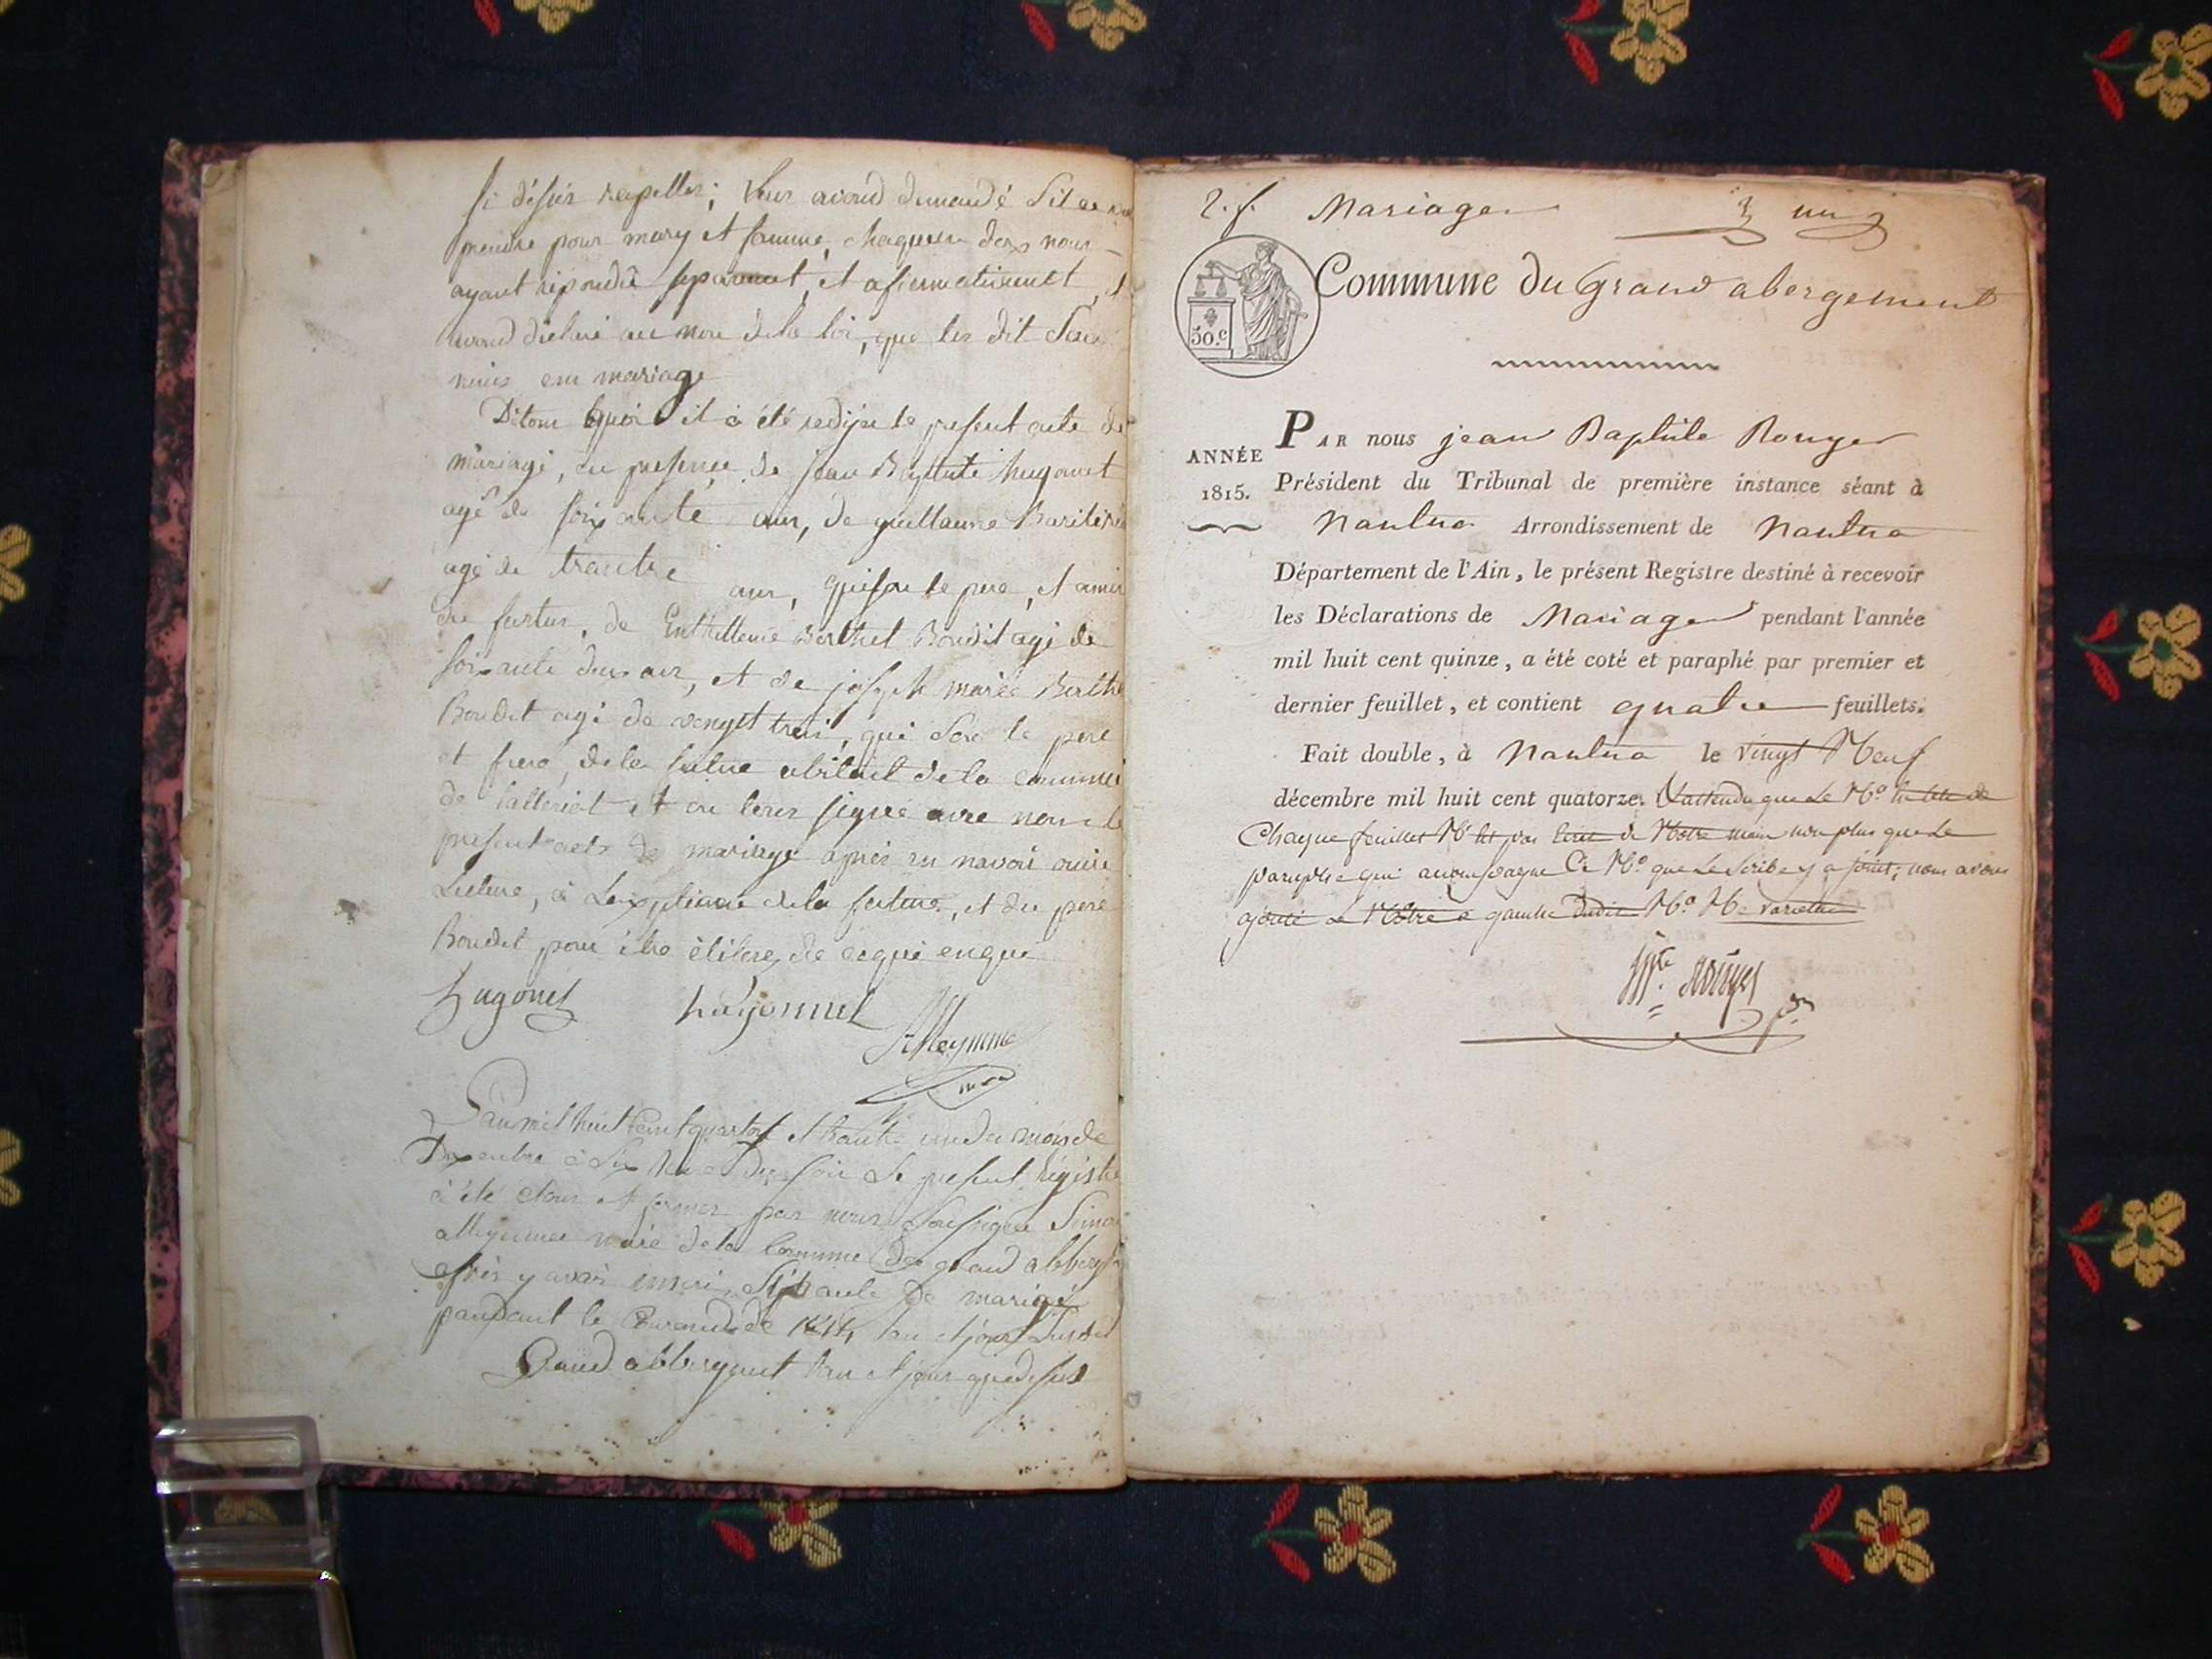 si désir rapeller; Leur avond demandé sil
prendre pour mary et famme, chaqueun deux nous
ayant répondu separemat, et afirmativemet,
avond déclaré au nom dela loi, que les dit Sond
unis enu mariage
Detous quoi il à été redijé le présent acte de
mariage, en presence de jean Baptiste hugonet
agé de soixante ans, de guillaume
agé de trantre ans, le pere, et amis
du futur, de Berthet Boudit agé de
soixante deux ans, et de joseph marie Berthe
Boudet agé de vengtt trois, qui son le pere
et frere, dela future abitant de la commune
de et on leurs signé avec nous le
présent acte de mariage après en navoir ouire
Lecture, à Lexsptionn dela future, et du pere
Boudet pour être de enqui
hugonet hugonnet
AlLeymme
Lan mil huit Cent quartorz et trante un du mois de
Dexembre à six heure du soir Le present Régistre
à été clour et fermer par nous Soussigné Simon
alleymme maire dela Commune de grand abberg
après y avoir inscri acte de mariage
pandant le Courand de 1814, lan et jour susdit
Grand abbergement lan et jour que desus
2. f. Mariages un
Commune du Grand abergement
50.c
PAR nous jean Baptiste Rouyer
ANNÉE
1815.
Président du Tribunal de première instance séant à
Nantua Arrondissement de Nantua
Département de l'Ain, le présent Registre destiné à recevoir
les Déclarations de Mariages pendant l'année
mil huit cent quinze, a été coté et paraphé par premier et
dernier feuillet, et contient quatre feuillets.
Fait double, à Nantua le vingt Neuf
décembre mil huit cent quatorze. Vattendu que Le N.o de
Chaque feuillet N'est pas Ecrit de Notre main non plus que Le
paraphe qui accompagne Ce N.o que Le Scribe y a joint; nous avons
ajouté Le Nôtre à gauche Dudit N.o Ne varietur
Bte. Rouyer